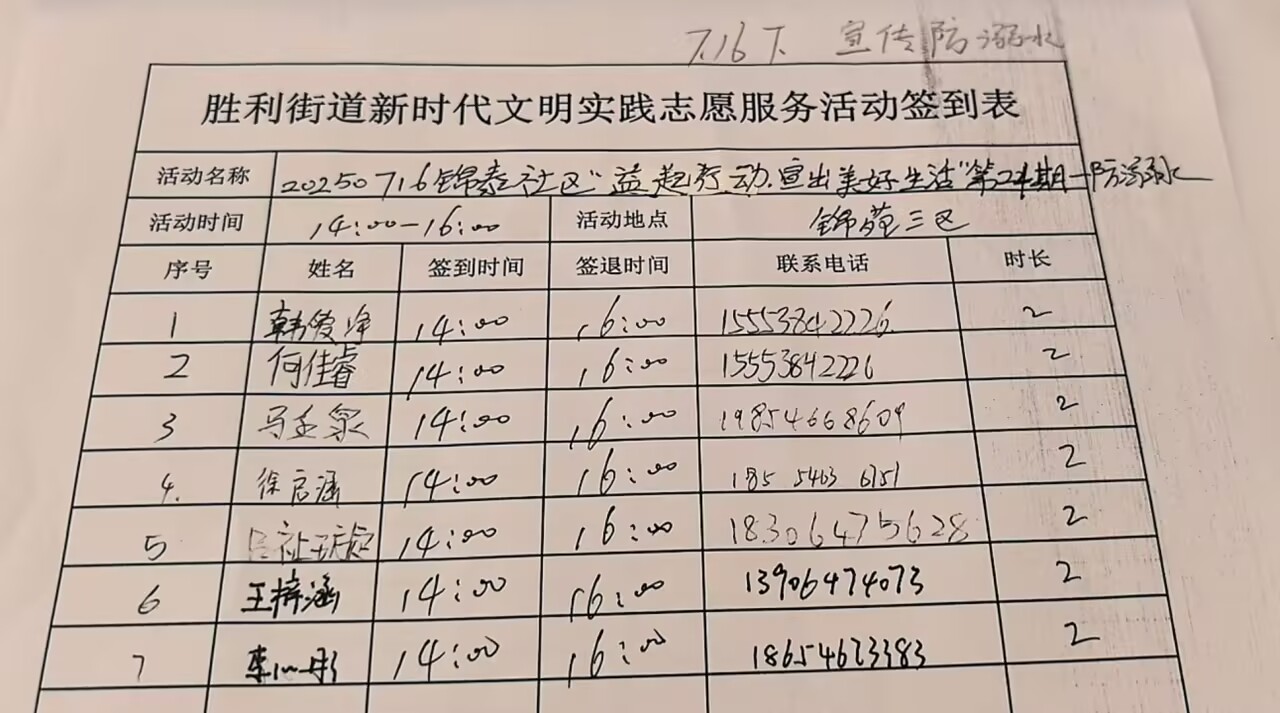 7.16下 宣传防溺水
胜利街道新时代文明实践志愿服务活动签到表
活动名称 20250716锦泰社区"益起行动.宣出美好生活"第二十期—防溺水
活动时间 14:00-16:00 活动地点 锦苑三区
序号 姓名 签到时间 签退时间 联系电话 时长
1 韩俊净 14:00 16:00 15553842226 2
2 何佳睿 14:00 16:00 15553842226 2
3 马孟泉 14:00 16:00 19854668609 2
4. 徐启涵 14:00 16:00 185 5463 6751 2
5 14:00 16:00 18306475628 2
6 王梓涵 14:00 16:00 13906474073 2
7 李心彤 14:00 16:00 18654673383 2